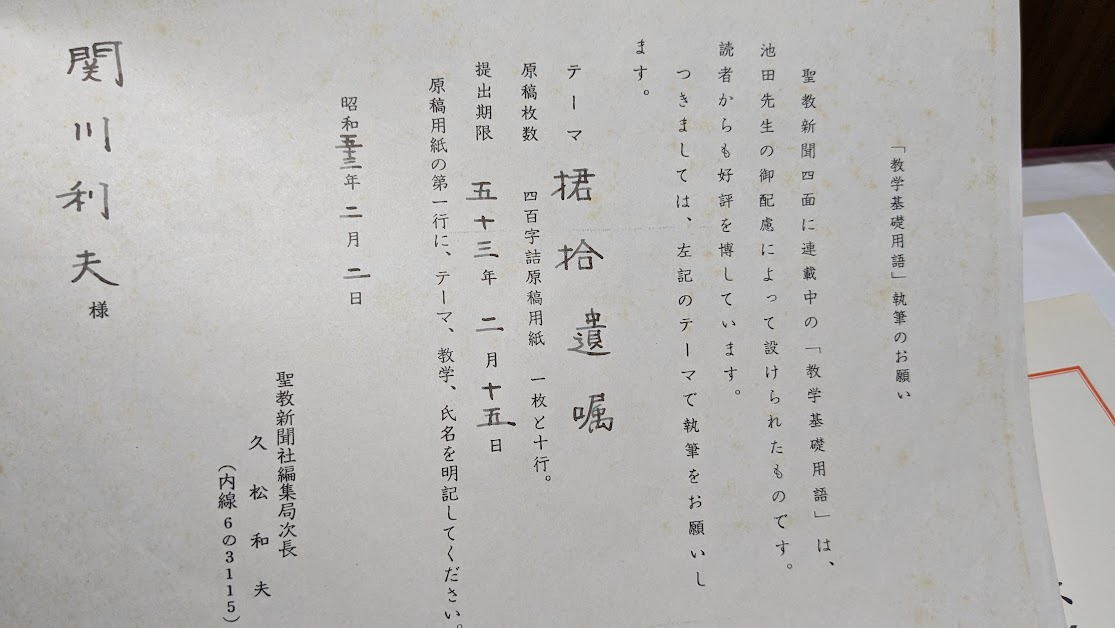 「教学基礎用語」執筆のお願い
聖教新聞四面に連載中の「教学基礎用語」は、
池田先生の御配慮によって設けられたものです。
読者からも好評を博しています。
つきましては、左記のテーマで執筆をお願いし
ます。
テーマ 捃拾遺嘱
原稿枚数 四百字詰原稿用紙 一枚と十行。
提出期限 五十三年 二月十五日
原稿用紙の第一行に、テーマ、教学、氏名を明記してください。
昭和五十三年二月二日
聖教新聞社編集局次長
久松和夫
(内線6の3115)
関川利夫様